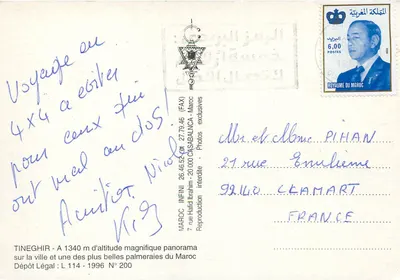 Voyage en
4x4 a éviter
pour ceux qui
ont mal au dos!
Amitiés Nicole
TINEGHIR - A 1340 m d'altitude magnifique panorama
sur la ville et une des plus belles palmeraies du Maroc
Dépôt Légal : L 114 - 1996 N° 200
MAROC INFINI 26.46.52 27.79.46 (FAX)
7 rue Hafid Ibrahim - 20 000 CASABLANCA - Maroc
Reproduction interdite - Photos exclusives
المملكة المغربية
البريد
6,00
POSTES
ROYAUME DU MAROC
Mr et Mme PIHAN
21 rue Emilienne
92140 CLAMART
FRANCE